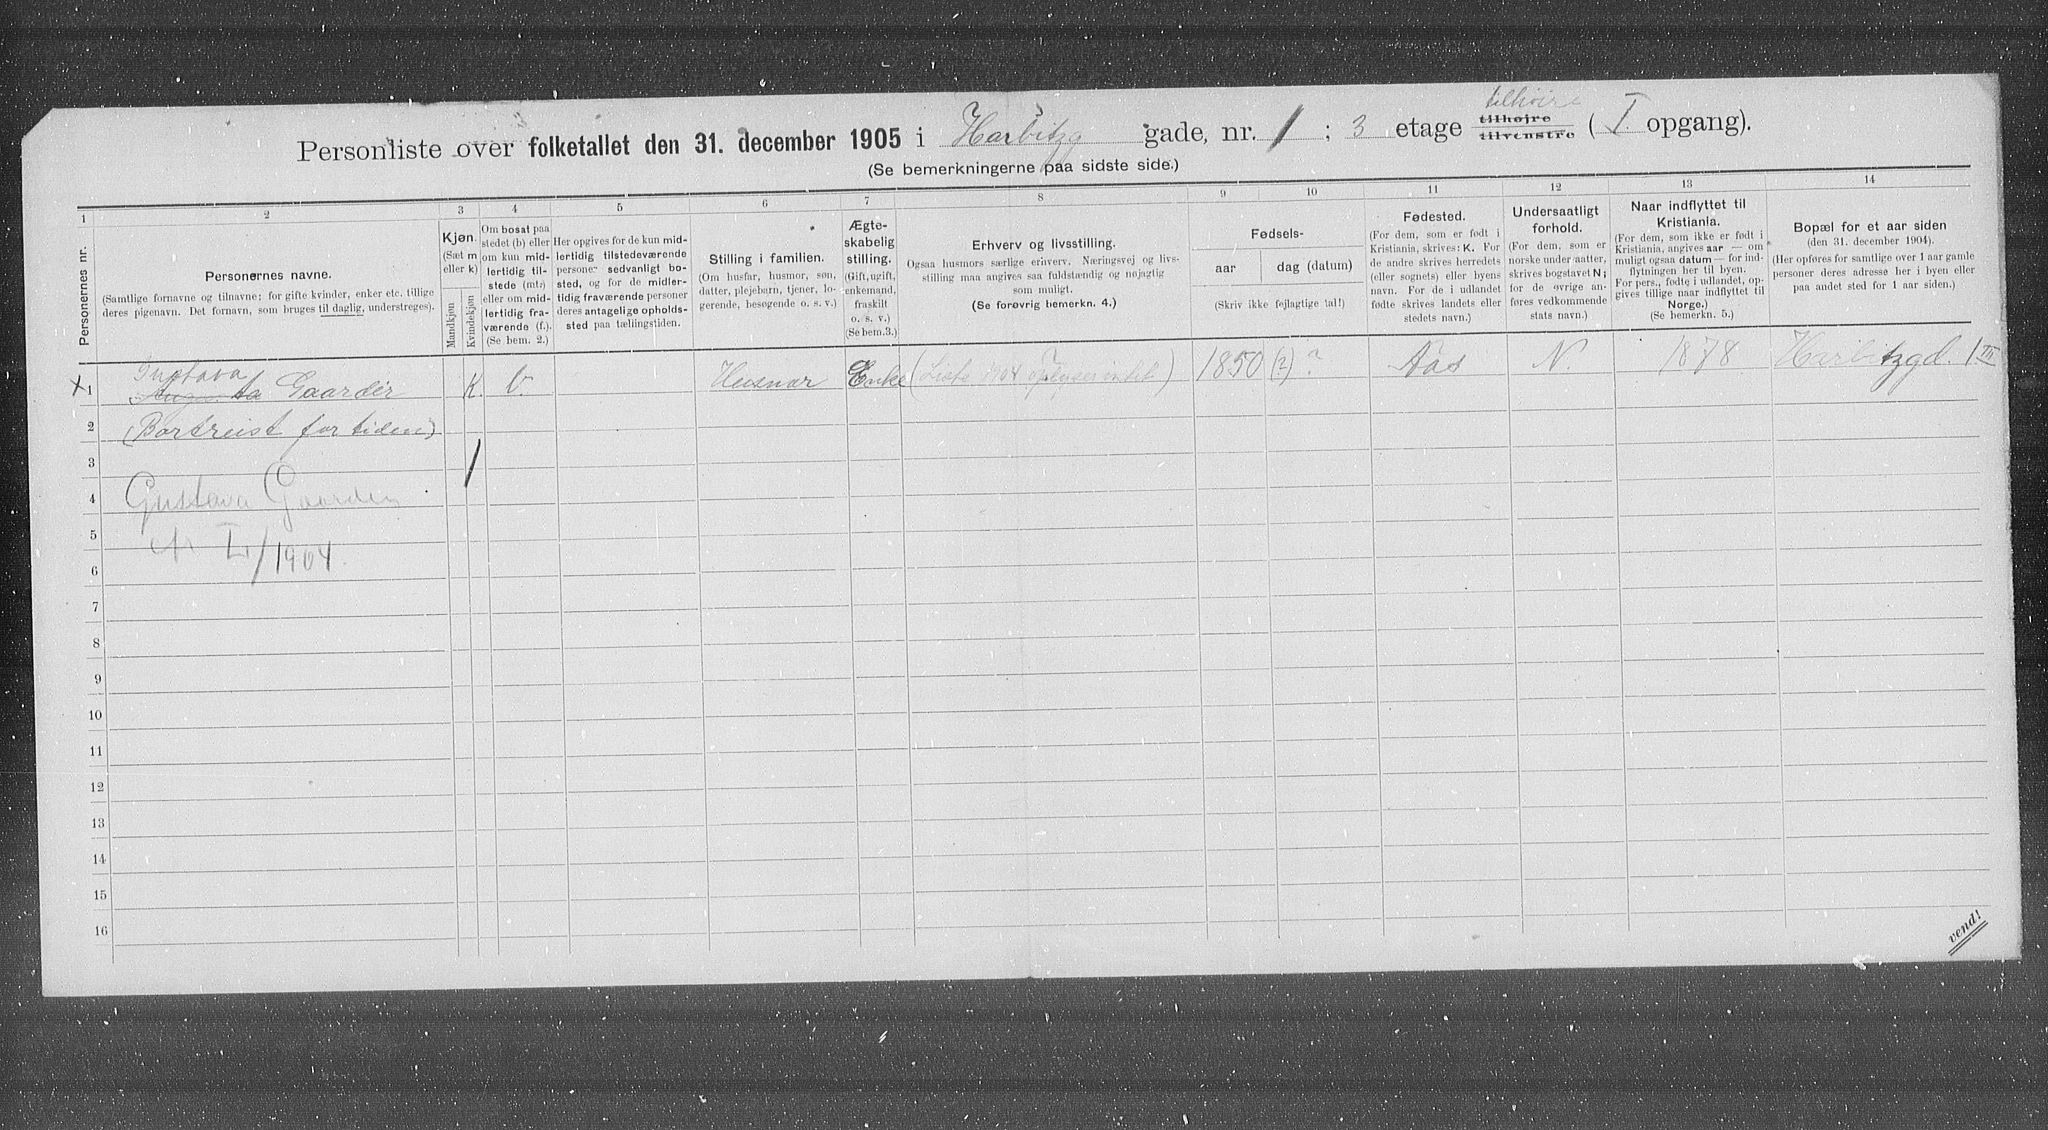 tilhøire
Personliste over folketallet den 31. december 1905 i Harbitz gade, nr. 1 ; 3 etage tilhøjre tilvenstre ( I. opgang).
(Se bemerkningerne paa sidste side.)
1 2 3 4 5 6 7 8 9 10 11 12 13 14
Personernes nr.
Personernes navne.
(Samtlige fornavne og tilnavne; for gifte kvinder, enker etc. tillige
deres pigenavn. Det fornavn, som bruges til daglig, understreges).
Kjøn.
(Sæt m
eller k)
Mandkjøn
Kvindekjøn
Om bosat paa
stedet (b) eller
om kun mid-
lertidig til-
stede (mt.)
eller om mid-
lertidig fra-
værende (f.).
(Se bem. 2.)
Her opgives for de kun mid-
lertidig tilstedeværende
personer sedvanligt bo-
sted, og for de midler-
tidig fraværende personer
deres antagelige opholds-
sted paa tællingstiden.
Stilling i familien.
(Om husfar, husmor, søn,
datter, plejebarn, tjener, lo-
gerende, besøgende o. s. v.)
Ægte-
skabelig
stilling.
(Gift, ugift,
enkemand,
fraskilt
o. s. v.)
(Se bem.3.)
Erhverv og livsstilling.
Ogsaa husmors særlige erhverv. Næringsvej og livs-
stilling maa angives saa fuldstændig og nøjagtig
som muligt.
(Se forøvrig bemerkn. 4.)
Fødsels-
aar dag (datum)
(Skriv ikke fejlagtige tal!)
Fødested.
(For dem, som er født i
Kristiania, skrives: K. For
de andre skrives herredets
(eller sognets) eller byens
navn. For de i udlandet
fødte skrives landets eller
stedets navn.)
Undersaatligt
forhold.
(For dem, som er
norske undersaatter,
skrives bogstavet N;
for de øvrige an-
føres vedkommende
stats navn.)
Naar indflyttet til
Kristiania.
(For dem, som ikke er født i
Kristiania, angives aar — om
muligt ogsaa datum — for ind-
flytningen her til byen.
For pers., fødte i udlandet, op-
gives tillige naar indflyttet til
Norge.)
(Se bemerkn. 5.)
Bopæl for et aar siden
(den 31. december 1904).
(Her opføres for samtlige over 1 aar gamle
personer deres adresse her i byen eller
paa andet sted for 1 aar siden.)
Gustava
X 1 Augusta Gaarder K. b. Husmor Enke (Liste 1904 oplyser intet) 1850 (?) ? Aas N. 1878 Harbitzgd. 1 III
2 (Bortreist for tiden)
3
4 Gustava Gaarder
5
6 /1904.
7
8
9
10
11
12
13
14
15
16
vend!